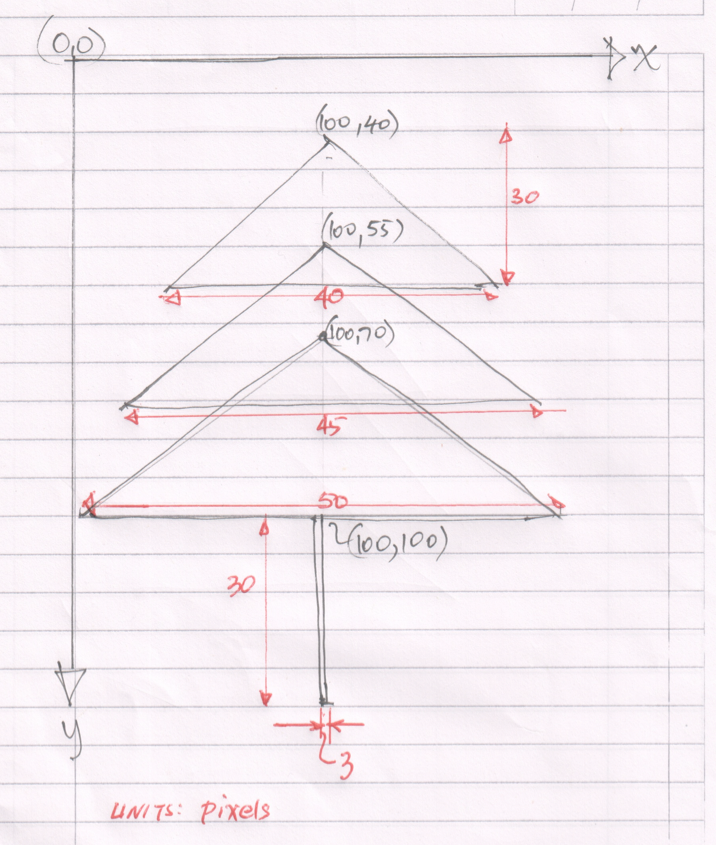 (0,0)
x
(100,40)
30
(100,55)
40
(100,70)
45
50
(100,100)
30
y
3
UNITS: pixels